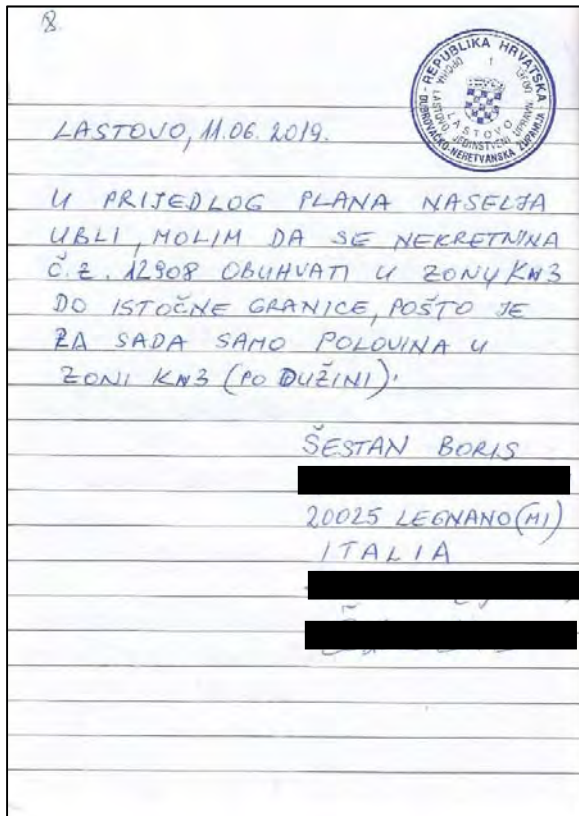 8.
REPUBLIKA HRVATSKA
DUBROVAČKO-NERETVANSKA ŽUPANIJA
LASTOVO
LASTOVO, 11.06.2019.
U PRIJEDLOG PLANA NASELJA
UBLI, MOLIM DA SE NEKRETNINA
Č.Z. 12908 OBUHVATI U ZONU KN3
DO ISTOČNE GRANICE, POŠTO JE
ZA SADA SAMO POLOVINA U
ZONI KN3 (PO DUŽINI).
ŠESTAN BORIS
20025 LEGNANO (MI)
ITALIA